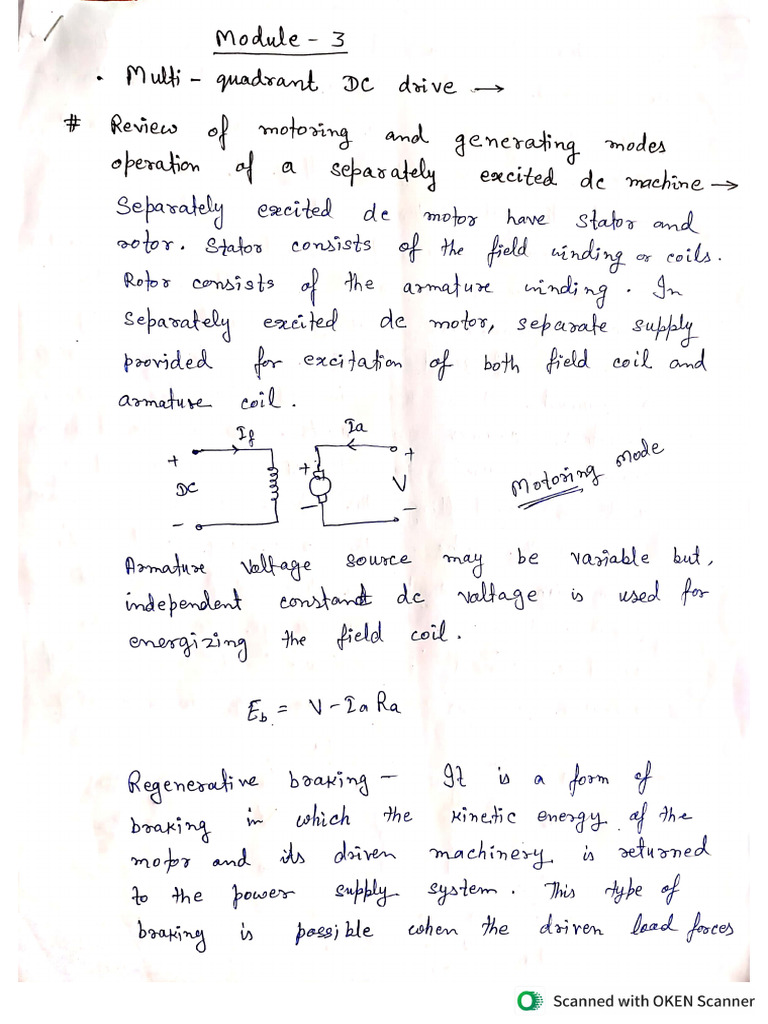 Module - 3
• Multi - quadrant DC drive →
# Review of motoring and generating modes
operation of a separately excited dc machine →
Separately excited dc motor have stator and
rotor. Stator consists of the field winding or coils.
Rotor consists of the armature winding. In
separately excited dc motor, separate supply
provided for excitation of both field coil and
armature coil.
If Ia
+ + +
DC V
- - -
Motoring mode
Armature voltage source may be variable but,
independent constant dc voltage is used for
energizing the field coil.
Eb = V - Ia Ra
Regenerative braking - It is a form of
braking in which the kinetic energy of the
motor and its driven machinery is returned
to the power supply system. This type of
braking is possible when the driven load forces
Scanned with OKEN Scanner